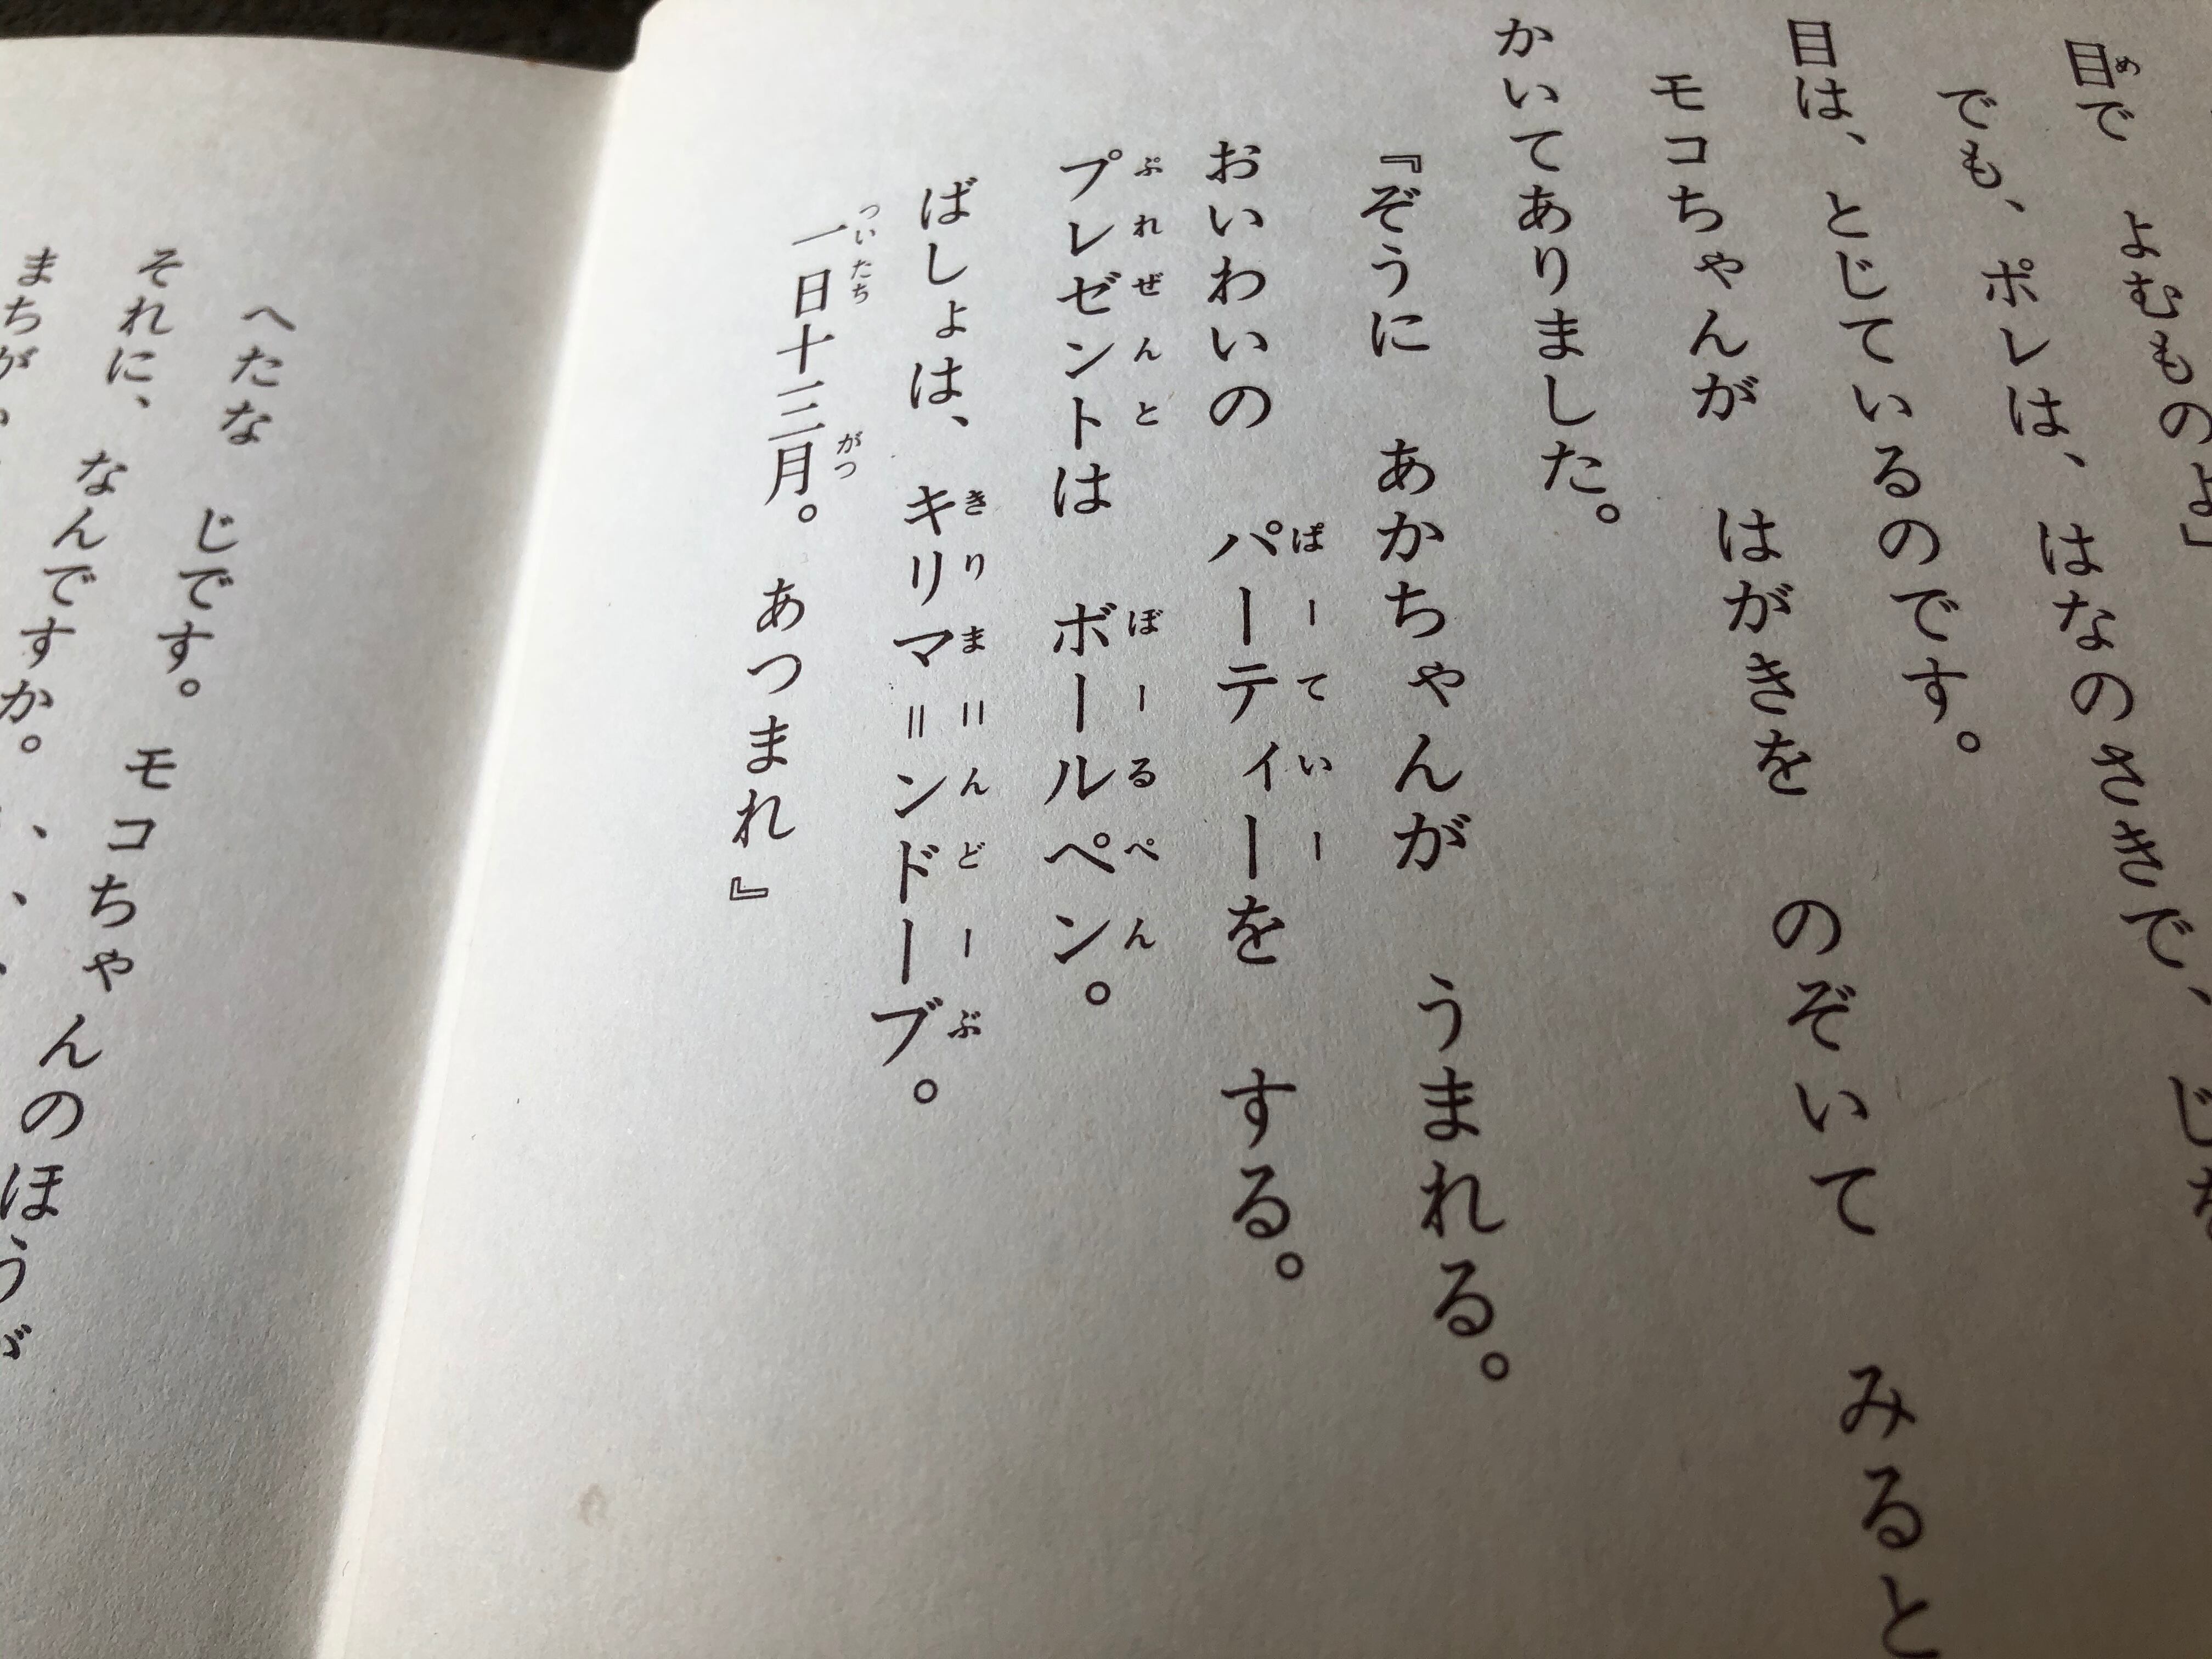 め
目で よむものよ」
でも、ポレは、はなのさきで、
目は、とじているのです。
モコちゃんが はがきを のぞいて みると
かいてありました。
『ぞうに あかちゃんが うまれる。
ぱーてぃー
おいわいの パーティーを する。
ぷれぜんと ぼーるぺん
プレゼントは ボールペン。
きりま=んどーぶ
ばしょは、 キリマ=ンドーブ。
ついたち がつ
一日十三月。 あつまれ』
へたな じです。 モコちゃんのほうが
それに、 なんですか。
まちが